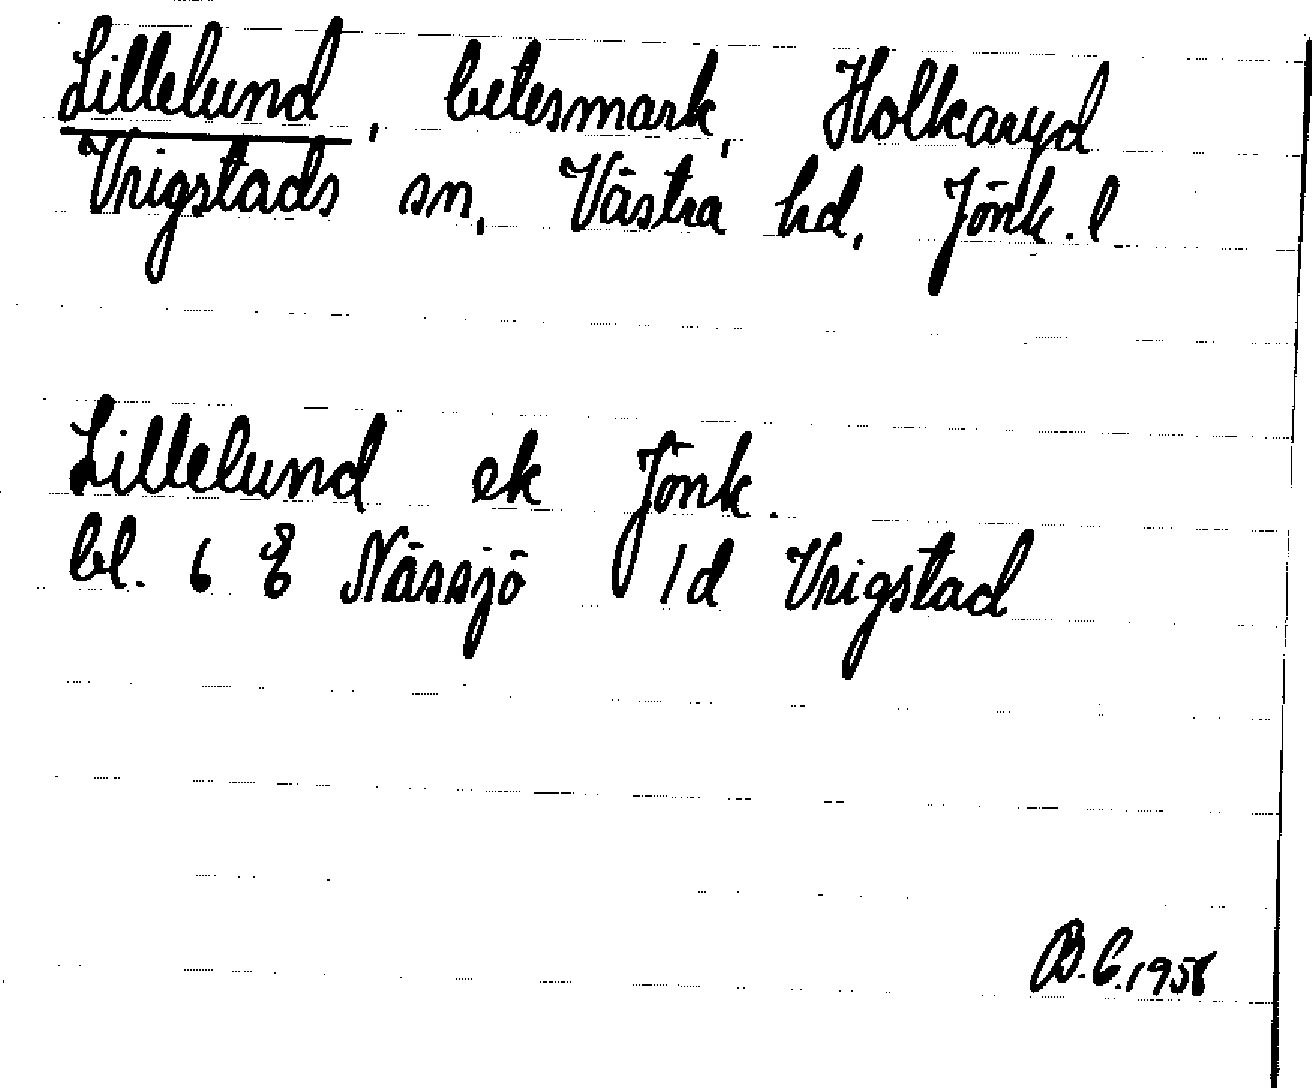 Lillelund, betesmark, Holkaryd
Vrigstads sn, Västra hd, Jönk. l
Lillelund ek Jönk.
bl. 6 E Nässjö 1d Vrigstad
B.C. 1958